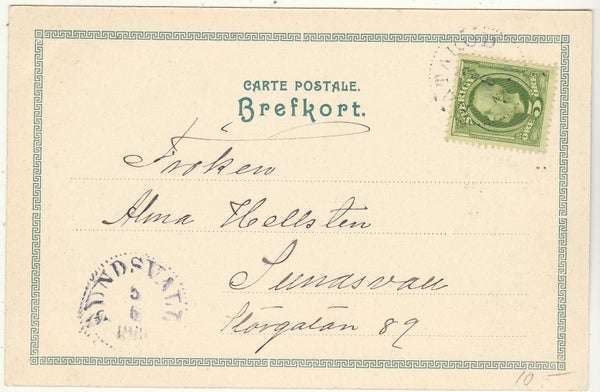 CARTE POSTALE.
Brefkort.
SVERIGE
5
Fröken
Alma Hellsten
Sundsvall
Storgatan 89
SUNDSVALL
5
10 –